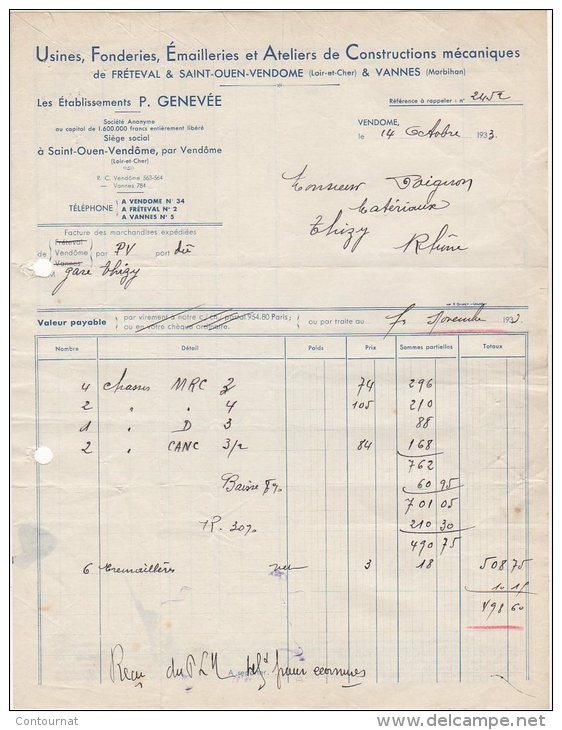 Usines, Fonderies, Émailleries et Ateliers de Constructions mécaniques
de FRÉTEVAL & SAINT-OUEN-VENDOME (Loir-et-Cher) & VANNES (Morbihan)
Les Établissements P. GENEVÉE
Référence à rappeler : n° 2452
Société Anonyme
au capital de 1.600.000 francs entièrement libéré
Siège social
à Saint-Ouen-Vendôme, par Vendôme
(Loir-et-Cher)
R. C. Vendôme 563-564
— Vannes 784
TÉLÉPHONE
A VENDOME N° 34
A FRÉTEVAL N° 2
A VANNES N° 5
VENDOME,
le 14 Octobre 1933
Monsieur Poignon
Matériaux
Thizy
Rhône
Facture des marchandises expédiées
de Fréteval Vendôme Vannes par PV port dû
M gare Thizy
Valeur payable par virement à notre c/ch. postal 954.80 Paris;
ou en votre chèque ordinaire.
ou par traite au fs Novembre 1933
Nombre Détail Poids Prix Sommes partielles Totaux
4 Chassis MRC 3 74 296
2 " " 4 105 210
1 " D 3 88
2 " CANC 3/2 84 168
762
Baisse 8% 60 95
701 05
R. 30% 210 30
490 75
6 Cremaillères net 3 18 508 75
10 15
498 60
Reçu du PLM pour
Contournat
delcampe.net